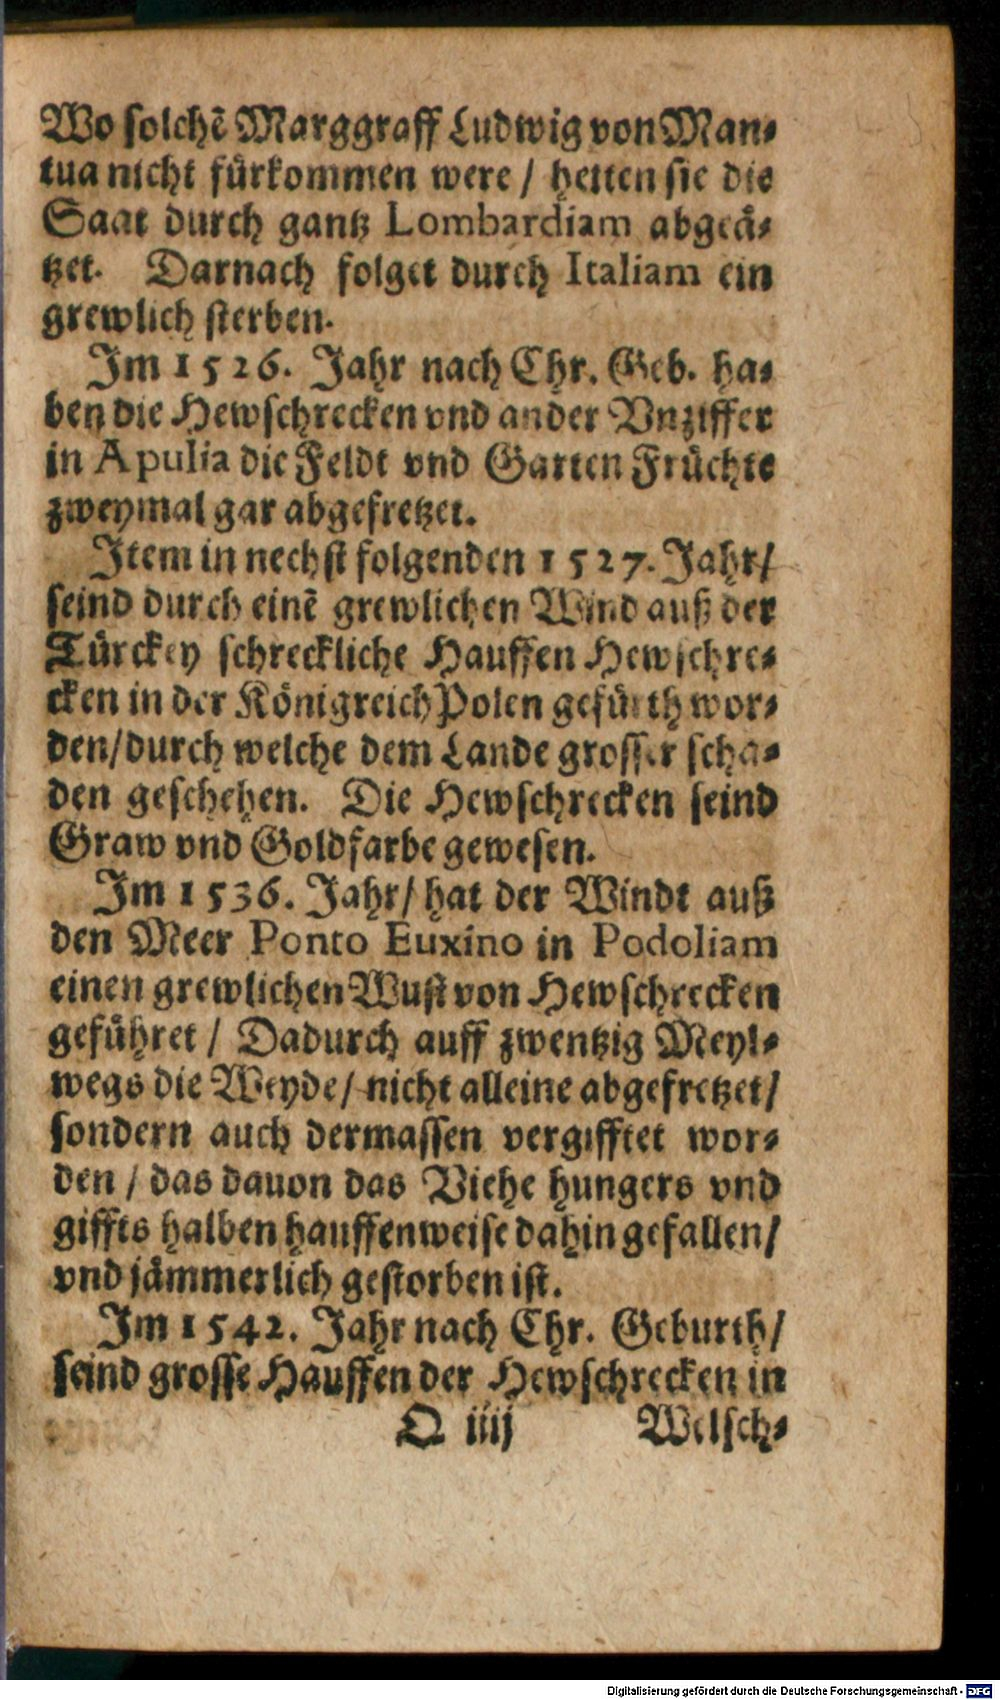 Wo solchẽ Marggraff Ludwig von Man-
tua nicht fürkommen were / hetten sie die
Saat durch gantz Lombardiam abgeä-
tzet. Darnach folget durch Italiam ein
grewlich sterben.
Im 1526. Jahr nach Chr. Geb. ha-
ben die Hewschrecken vnd ander Vnziffer
in Apulia die Feldt vnd Garten Früchte
zweymal gar abgefretzet.
Item in nechst folgenden 1527. Jahr/
seind durch einẽ grewlichen Wind auß der
Türckey schreckliche Hauffen Hewschre-
cken in der Königreich Polen gefürth wor-
den/durch welche dem Lande grosser scha-
den geschehen. Die Hewschrecken seind
Graw vnd Goldfarbe gewesen.
Im 1536. Jahr/ hat der Windt auß
den Meer Ponto Euxino in Podoliam
einen grewlichen Wust von Hewschrecken
geführet / Dadurch auff zwentzig Meyl-
wegs die Weyde/ nicht alleine abgefretzet/
sondern auch dermassen vergifftet wor-
den / das dauon das Viehe hungers vnd
giffts halben hauffenweise dahin gefallen/
vnd jämmerlich gestorben ist.
Im 1542. Jahr nach Chr. Geburth/
seind grosse Hauffen der Hewschrecken in
O iiij Welsch-
Digitalisierung gefördert durch die Deutsche Forschungsgemeinschaft - DFG